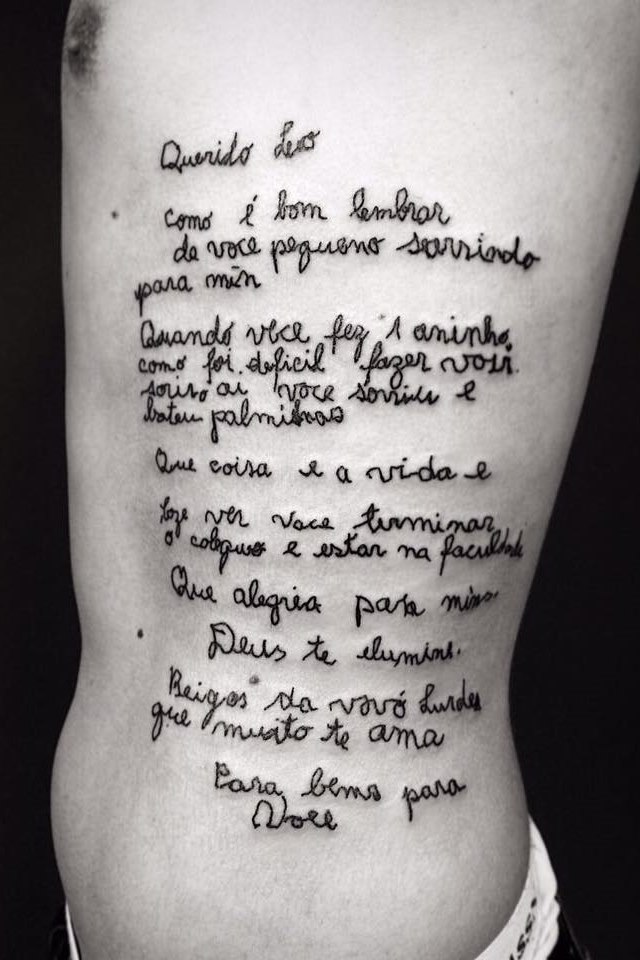 Querido Leo
como é bom lembrar
de voce pequeno sorrindo
para min
Quando voce fez 1 aninho
como foi deficil fazer voce
soriso ai voce sorriu e
bateu palminhas
Que coisa e a vida e
hoze ver voce terminar
o coleguio e estar na faculdade
Que alegria para mim
Deus te elumine.
Beigos da vovó Lurdes
que muito te ama
Para bems para
Voce
ss: